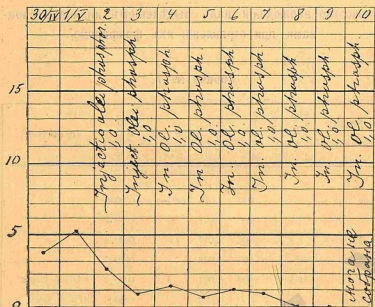 30/IV 1/V 2 3 4 5 6 7 8 9 10
15
10
5
0
Injectio olei phosphor. 1,0
Inject. Olei phosph 1,0
In. Ol. phosph 1,0
In. Ol. phosph 1,0
In. Ol. phosph 1,0
In. Ol. phosph 1,0
In. Ol. phosph 1,0
In. Ol. phosph 1,0
In. Ol. phosph 1,0
Моча не
собрана